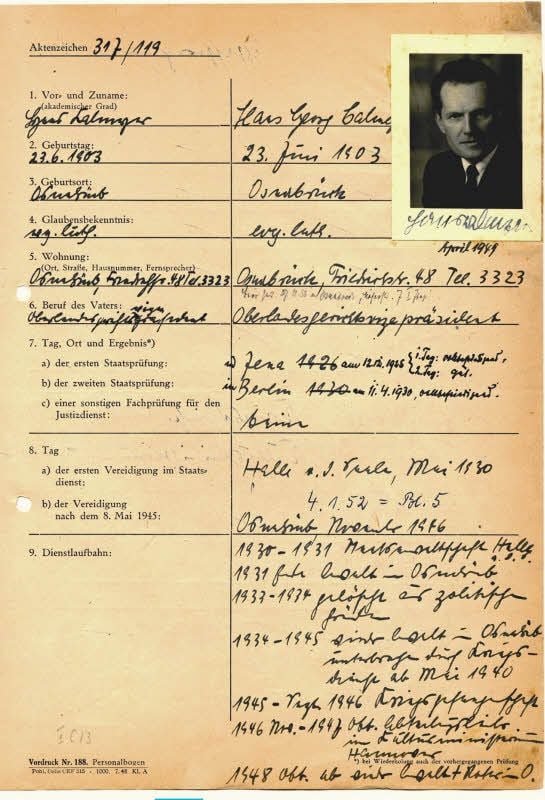 Aktenzeichen 317/119
1. Vor- und Zuname:
(akademischer Grad)
Hans Calmeyer
Hans Georg Calmey
2. Geburtstag:
23.6.1903
23. Juni 1903
3. Geburtsort:
Osnabrück
Osnabrück
4. Glaubensbekenntnis:
evg. luth.
evg. luth.
April 1949
5. Wohnung:
(Ort, Straße, Hausnummer, Fernsprecher)
Osnabrück Friedrichstr. 48 Tel. 3323
Osnabrück, Friedrichstr. 48 Tel. 3323
6. Beruf des Vaters:
Oberlandesgerichtsvizepräsident
7. Tag, Ort und Ergebnis*)
a) der ersten Staatsprüfung:
Jena 1926 am
b) der zweiten Staatsprüfung:
in Berlin 1930 am 11.4.1930,
c) einer sonstigen Fachprüfung für den
Justizdienst:
keine
8. Tag
a) der ersten Vereidigung im Staats-
dienst:
Halle a. d. Saale, Mai 1930
4.1.52 =
b) der Vereidigung
nach dem 8. Mai 1945:
Osnabrück November 1946
9. Dienstlaufbahn:
1930 - 1931 Staatsanwaltschaft Halle
1931 Anwalt in Osnabrück
1933-1934 gelöscht aus politischen
Gründen
1934-1945 wieder Anwalt in Osnabrück
unterbrochen durch Kriegs-
dienst ab Mai 1940
1945 - Sept. 1946 Kriegsgefangenschaft
1946 Nov. - 1947 Okt. Abteilungsleiter
im Kultusministerium
Hannover
*) bei Wiederholung auch der vorhergegangenen Prüfung
1948 Okt. ab wieder Anwalt + Notar in O.
Vordruck Nr. 188. Personalbogen